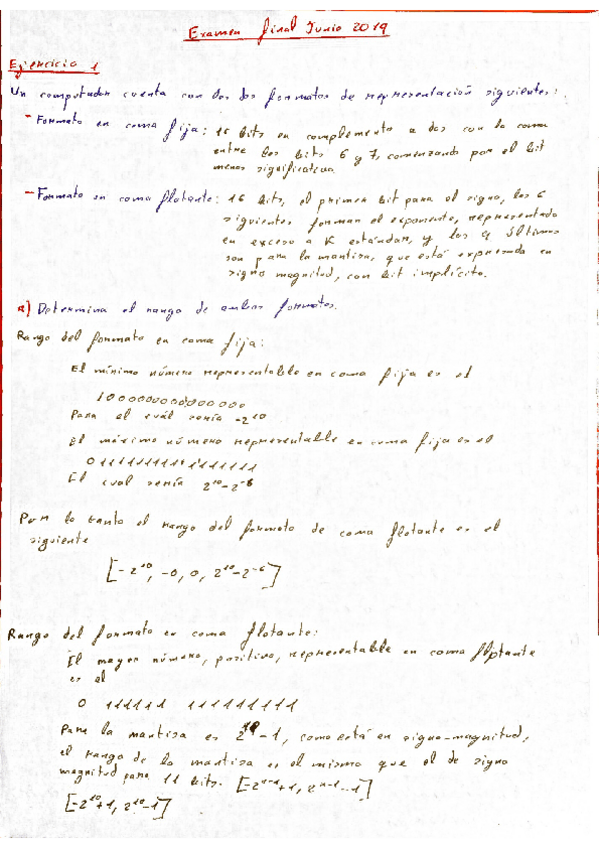 Examen final Junio 2019
Ejercicio 1
Un computador cuenta con los dos formatos de representación siguientes:
- Formato en coma fija: 16 bits en complemento a dos con la coma
entre los bits 6 y 7, comenzando por el bit
menos significativo.
- Formato en coma flotante: 16 bits, el primer bit para el signo, los 6
siguientes forman el exponente, representado
en exceso a K estándar, y los 9 últimos
son para la mantisa, que está expresada en
signo magnitud, con bit implícito.
a) Determina el rango de ambos formatos.
Rango del formato en coma fija:
El mínimo número representable en coma fija es el
1000000000000000
Para el cuál sería -2^10
El máximo número representable en coma fija es el
0111111111111111
El cual sería 2^10-2^-6
Por lo tanto el rango del formato de coma flotante es el
siguiente
[-2^10, -0, 0, 2^10-2^-6]
Rango del formato en coma flotante:
El mayor número, positivo, representable en coma flotante
es el
0 111111 111111111
Para la mantisa es 2^10-1, como está en signo-magnitud,
el rango de la mantisa es el mismo que el de signo
magnitud para 11 bits. [-2^n-1+1, 2^n-1-1]
[-2^10+1, 2^10-1]